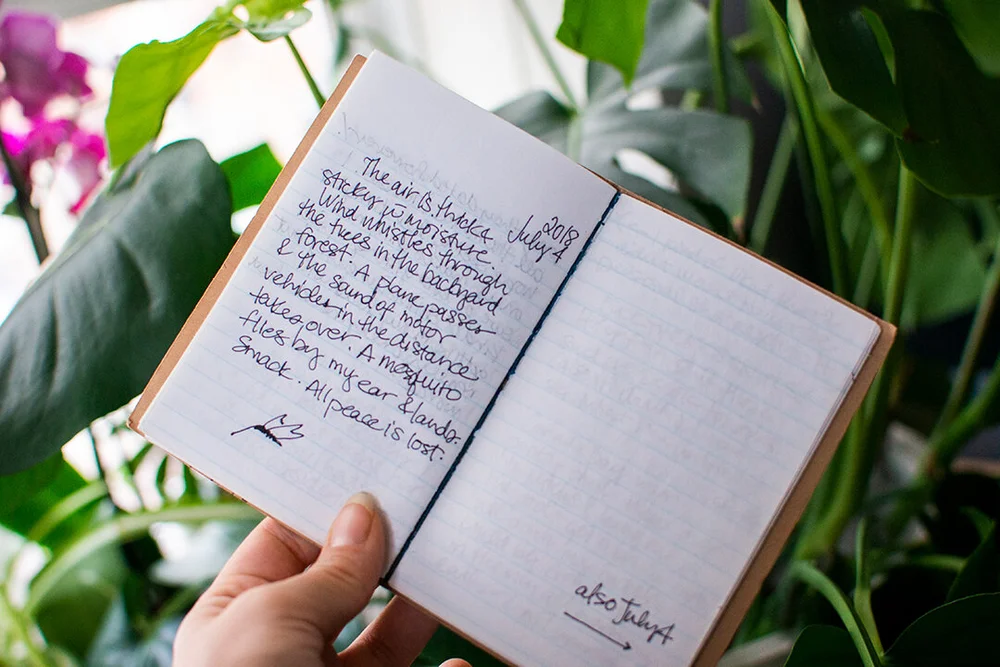 2018
July 4
The air is thick &
sticky w̄ moisture.
Wind whistles through
the trees in the backyard
forest. A plane passes
& the sound of motor
vehicles in the distance
takes over. A mosquito
flies by my ear & lands.
Smack. All peace is lost.
also July 4